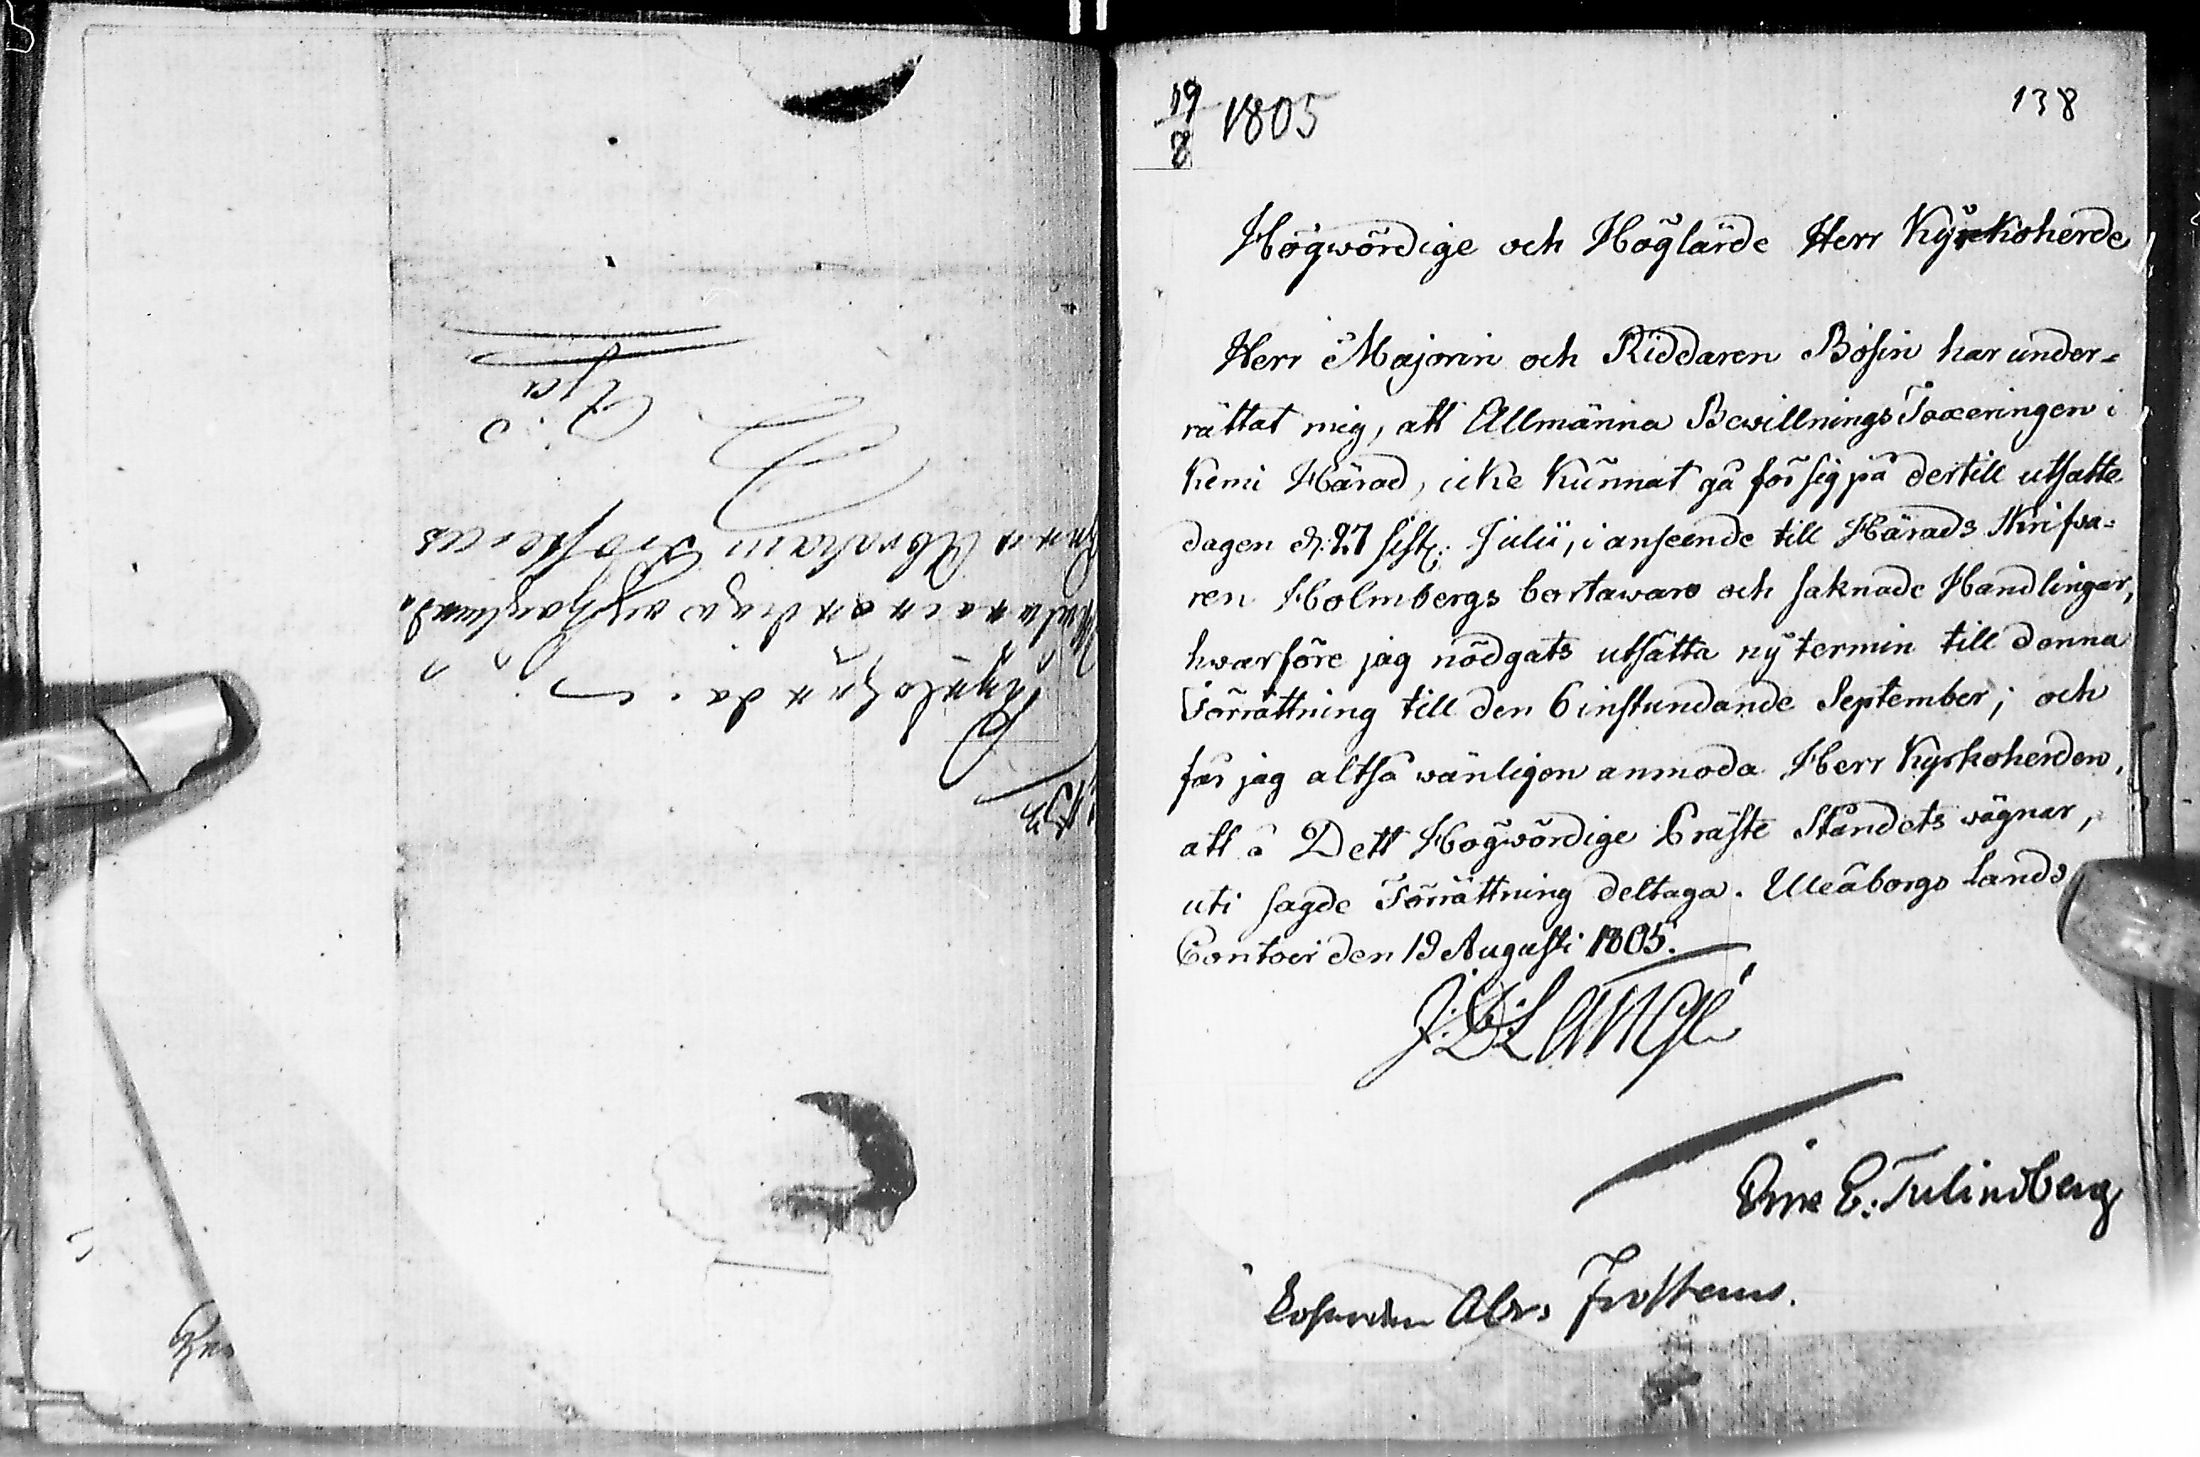 Kyrkoherden
Herr Abraham Frosterus
Ijo
19/8 1805
138
Högwördige och Höglärde Herr Kyrkoherde
Herr Majoren och Riddaren Bosin har under=
rättat mig, att Allmänna Bewillnings Taxeringen i
Kemi Härad, icke kunnat gå för sig på dertill utsatte
dagen d. 27 sistl. Julii, i anseende till Härads Skrifwa=
ren Holmbergs bortawaro och saknade Handlingar,
hwarföre jag nödgats utsätta ny termin till denna
Förrättning till den 6 instundande September; och
får jag altså wänligen anmoda Herr Kyrkoherden,
att å Dett Högwördige Präste Ståndets wägnar,
uti sagde Förrättning deltaga. Uleåborgs Lands
Contoir den 19 Augusti 1805.
J: D: Lange
Eric E: Tulindberg
Abr. Frosterus.